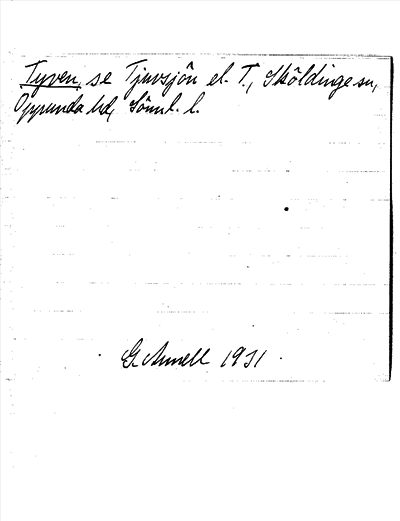 Tyven, se Tjuvsjön el. T., Sköldinge sn,
Oppunda hd, Sömnl. l.
G. Amnell 1931